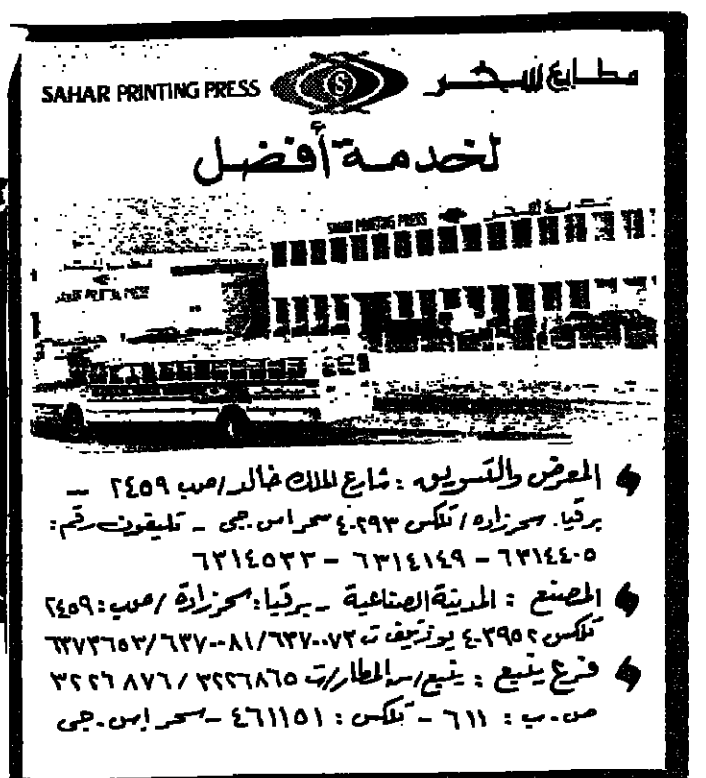 SAHAR PRINTING PRESS
مطابع سحر
لخدمة أفضل
SAHAR PRINTING PRESS
المعرض والتسويق : شارع الملك خالد / ص.ب ٢٤٥٩ –
برقيا. سحرزاده / تلكس ٤٠٢٩٣ سحر اس.جى – تليفون رقم :
٦٣١٤٤٠٥ – ٦٣١٤١٤٩ – ٦٣١٤٥٣٣
المصنع : المدينة الصناعية – برقيا : سحرزادة / ص.ب : ٢٤٥٩
تلكس ٤٠٣٩٥٢ ت ٦٣٧٠٠٧٣/٦٣٧٠٠٨١/٦٣٧٣٦٥٣
فرع ينبع : ينبع / المطار / ت ٣٢٢٦٨٦٥ / ٣٢٢٦٨٧٦
ص.ب : ٦١١ – تلكس : ٤٦١١٥١ – سحر إس.جى